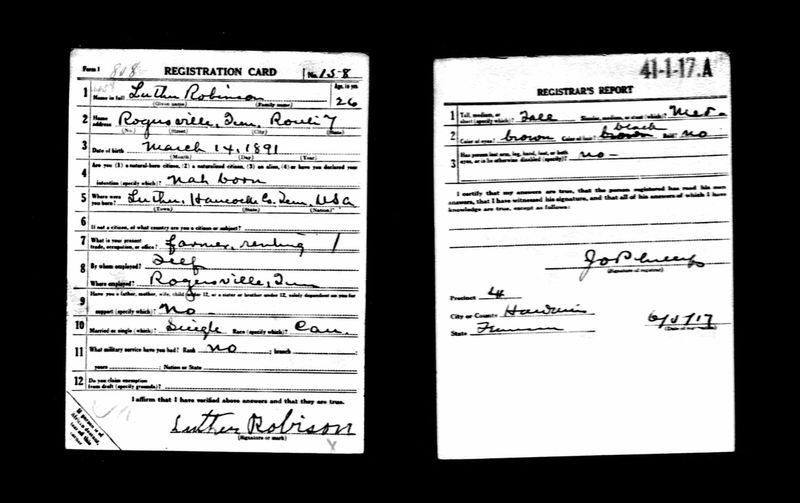 Form 1 808 REGISTRATION CARD No. 158
1 Name in full Luther Robinson Age, in yrs. 26
(Given name) (Family name)
2 Home address Rogersville, Tenn, Route 7
(No.) (Street) (City) (State)
3 Date of birth March 14, 1891
(Month) (Day) (Year)
4 Are you (1) a natural-born citizen, (2) a naturalized citizen, (3) an alien, (4) or have you declared your
intention (specify which)? Nat born
5 Where were you born? Luther, Hancock Co. Tenn, USA
(Town) (State) (Nation)
6 If not a citizen, of what country are you a citizen or subject?
7 What is your present trade, occupation, or office? farmer, renting
8 By whom employed? Self
Where employed? Rogersville, Tenn
9 Have you a father, mother, wife, child under 12, or a sister or brother under 12, solely dependent on you for
support (specify which)? No
10 Married or single (which)? Single Race (specify which)? Cau.
11 What military service have you had? Rank no ; branch
years ; Nation or State
12 Do you claim exemption from draft (specify grounds)?
I affirm that I have verified above answers and that they are true.
Luther Robison
(Signature or mark)
If person is of African descent,
41-1-17.A
REGISTRAR'S REPORT
1 Tall, medium, or short (specify which)? Tall Slender, medium, or stout (which)? Med
2 Color of eyes? brown Color of hair? brown black Bald? No
3 Has person lost arm, leg, hand, foot, or both eyes, or is he otherwise disabled (specify)? no
I certify that my answers are true, that the person registered has read his own
answers, that I have witnessed his signature, and that all of his answers of which I have
knowledge are true, except as follows:
(Signature of registrar)
Precinct 4
City or County Hawkins
State Tennessee 6/5/17
(Date of registration)